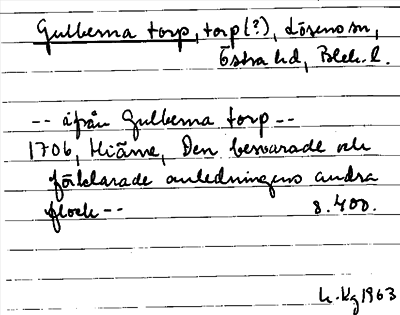 Gullberna torp, torp(?), Lösens sn,
Östra hd, Blek. l.
-- ifrån Gullberna torp --
1706, Hiärne, Den besvarade och
förklarade anledningens andra
flock -- 8.400.
h. Kg 1963